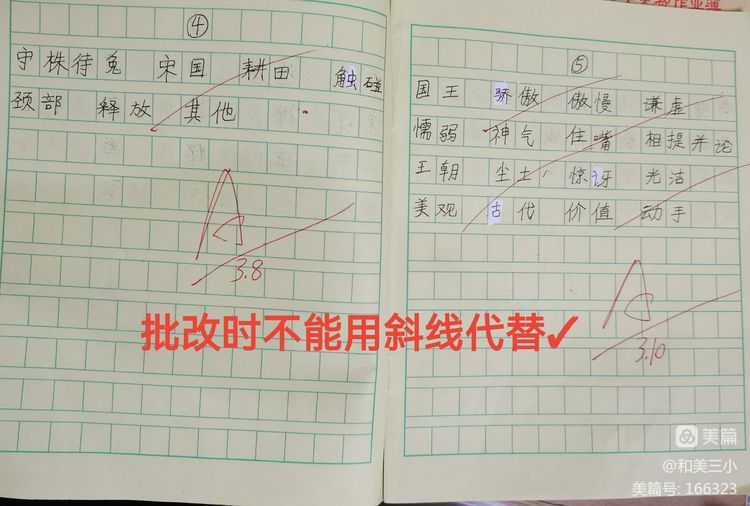 ④
守株待兔 宋国 耕田 触碰
颈部 释放 其他
A
3.8
⑤
国王 骄傲 傲慢 谦虚
懦弱 神气 住嘴 相提并论
王朝 尘土 惊讶 光洁
美观 古代 价值 动手
A
3.10
批改时不能用斜线代替✓
美篇
@和美三小
美篇号: 166323